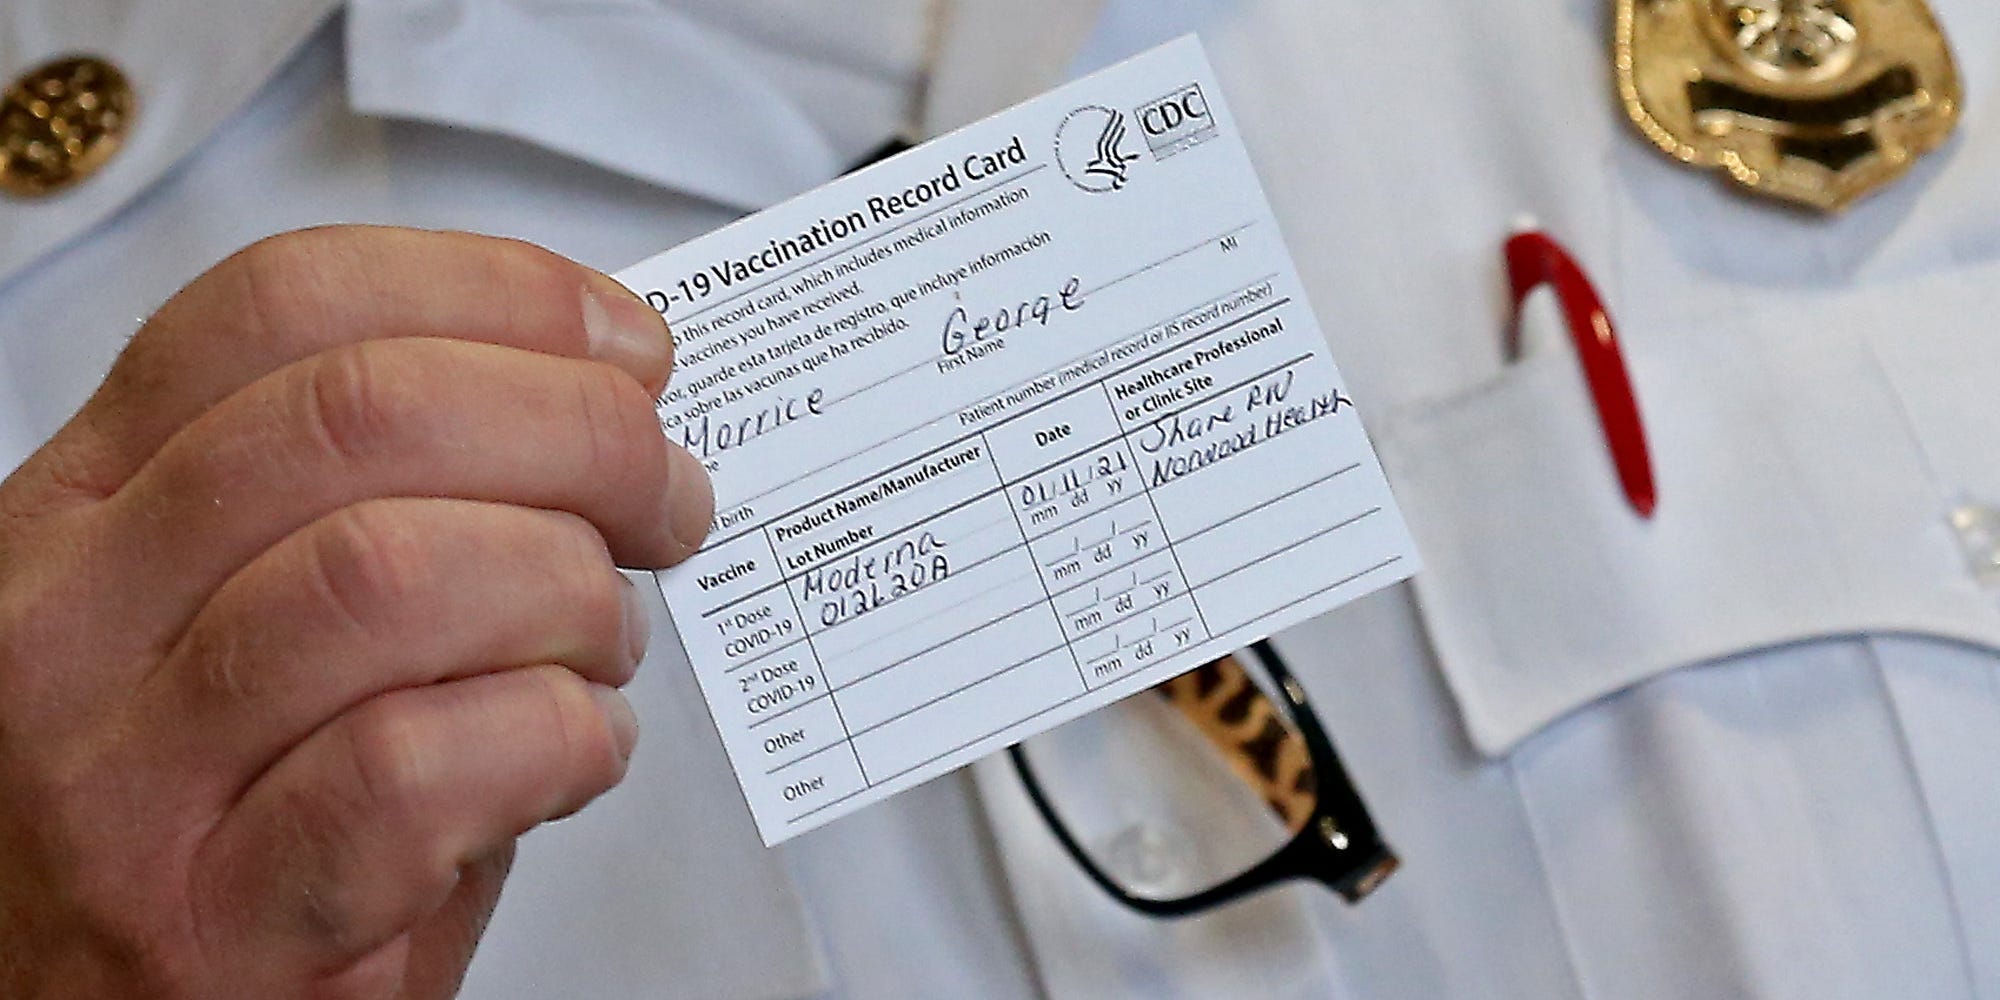 D-19 Vaccination Record Card
CDC
this record card, which includes medical information
vaccines you have received.
guarde esta tarjeta de registro, que incluye información
sobre las vacunas que ha recibido.
Morrice George
First Name MI
birth Patient number (medical record or IIS record number)
Vaccine Product Name/Manufacturer Date Healthcare Professional
Lot Number or Clinic Site
1st Dose Moderna 01/11/21 Share RN
COVID-19 012L20A mm dd yy Norwood Health
2nd Dose / /
COVID-19 mm dd yy
Other / /
mm dd yy
Other / /
mm dd yy